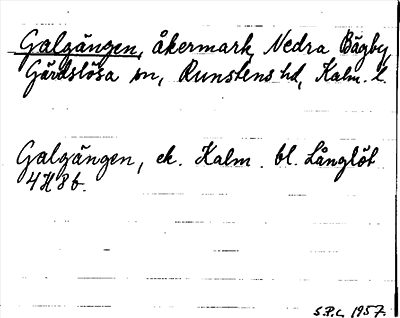 Galgängen, åkermark, Nedra Bägby,
Gärdslösa sn, Runstens hd, Kalm. l.
Galgängen, ek. Kalm. bl. Långlöt
4H8b.
S.P.L. 1957.